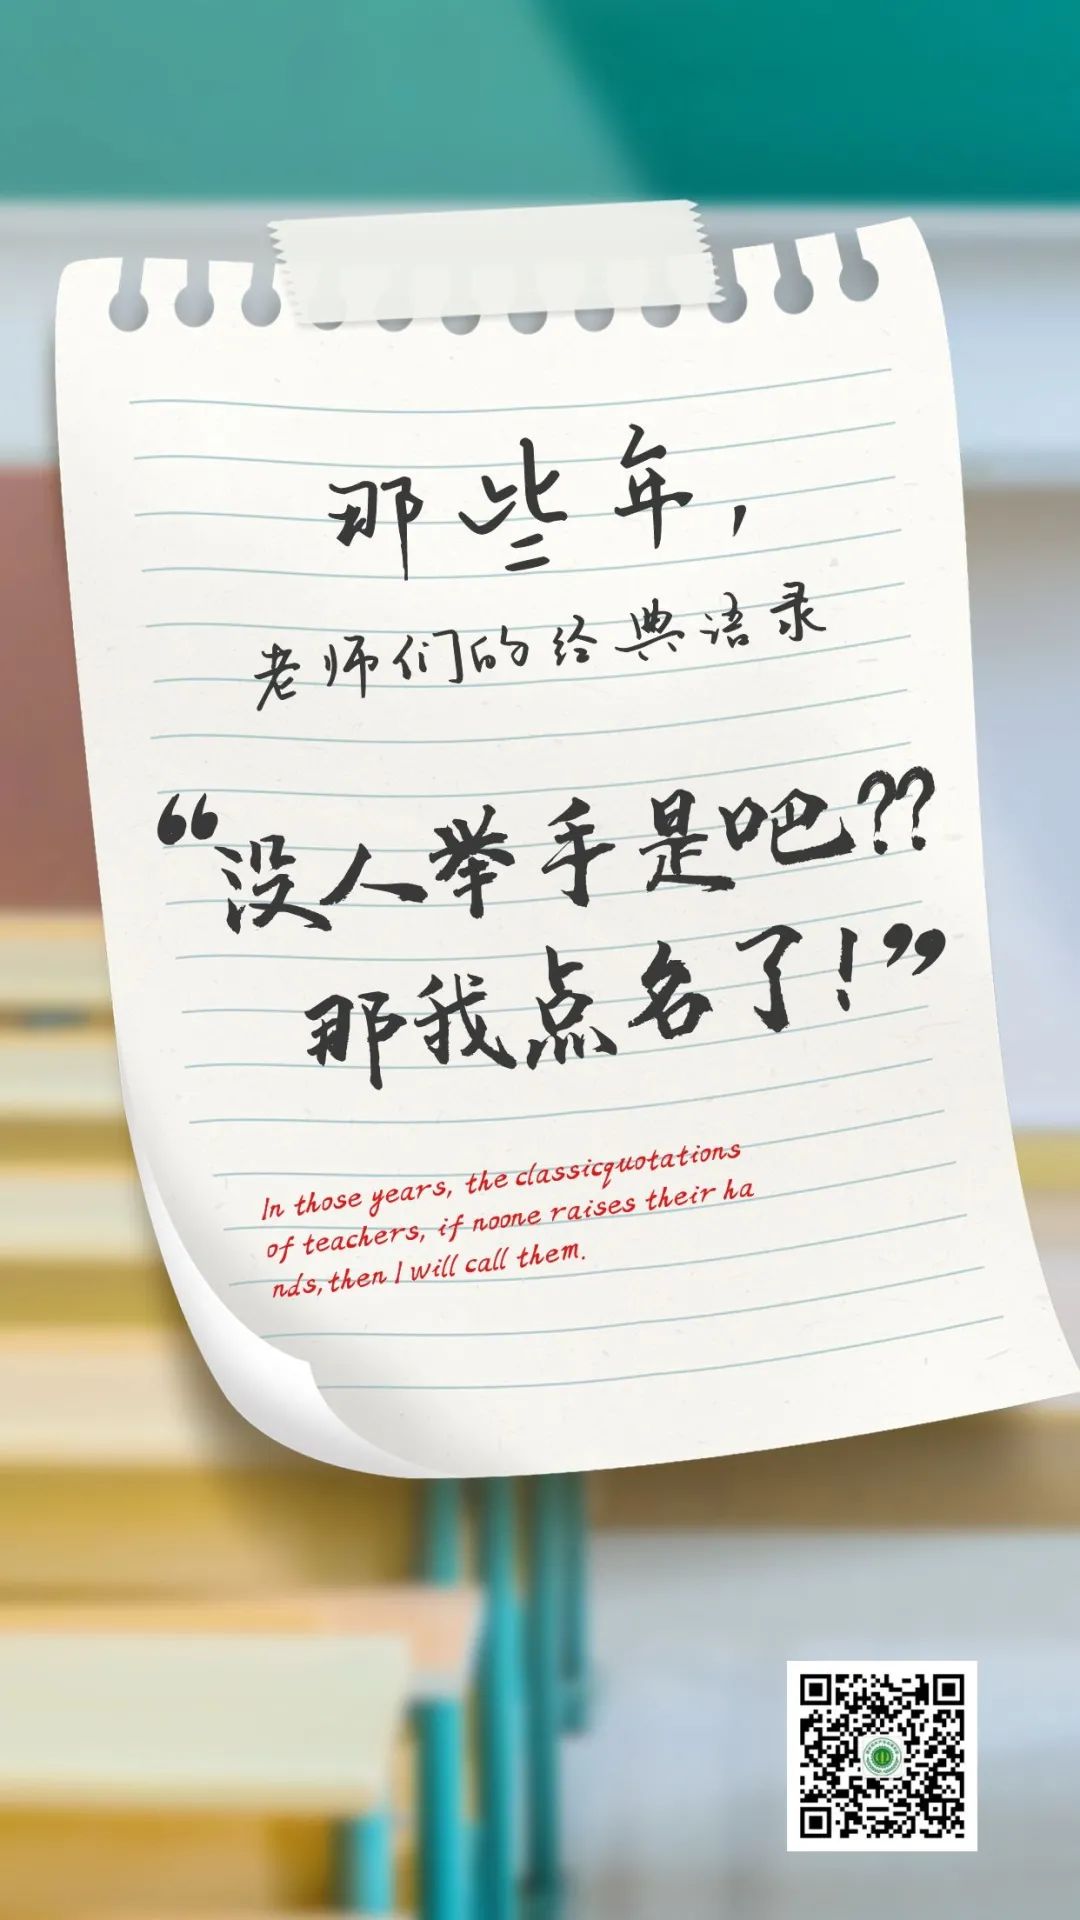 那些年，
老师们的经典语录
“没人举手是吧??
那我点名了!”
In those years, the classicquotations
of teachers, if noone raises their ha
nds,then I will call them.